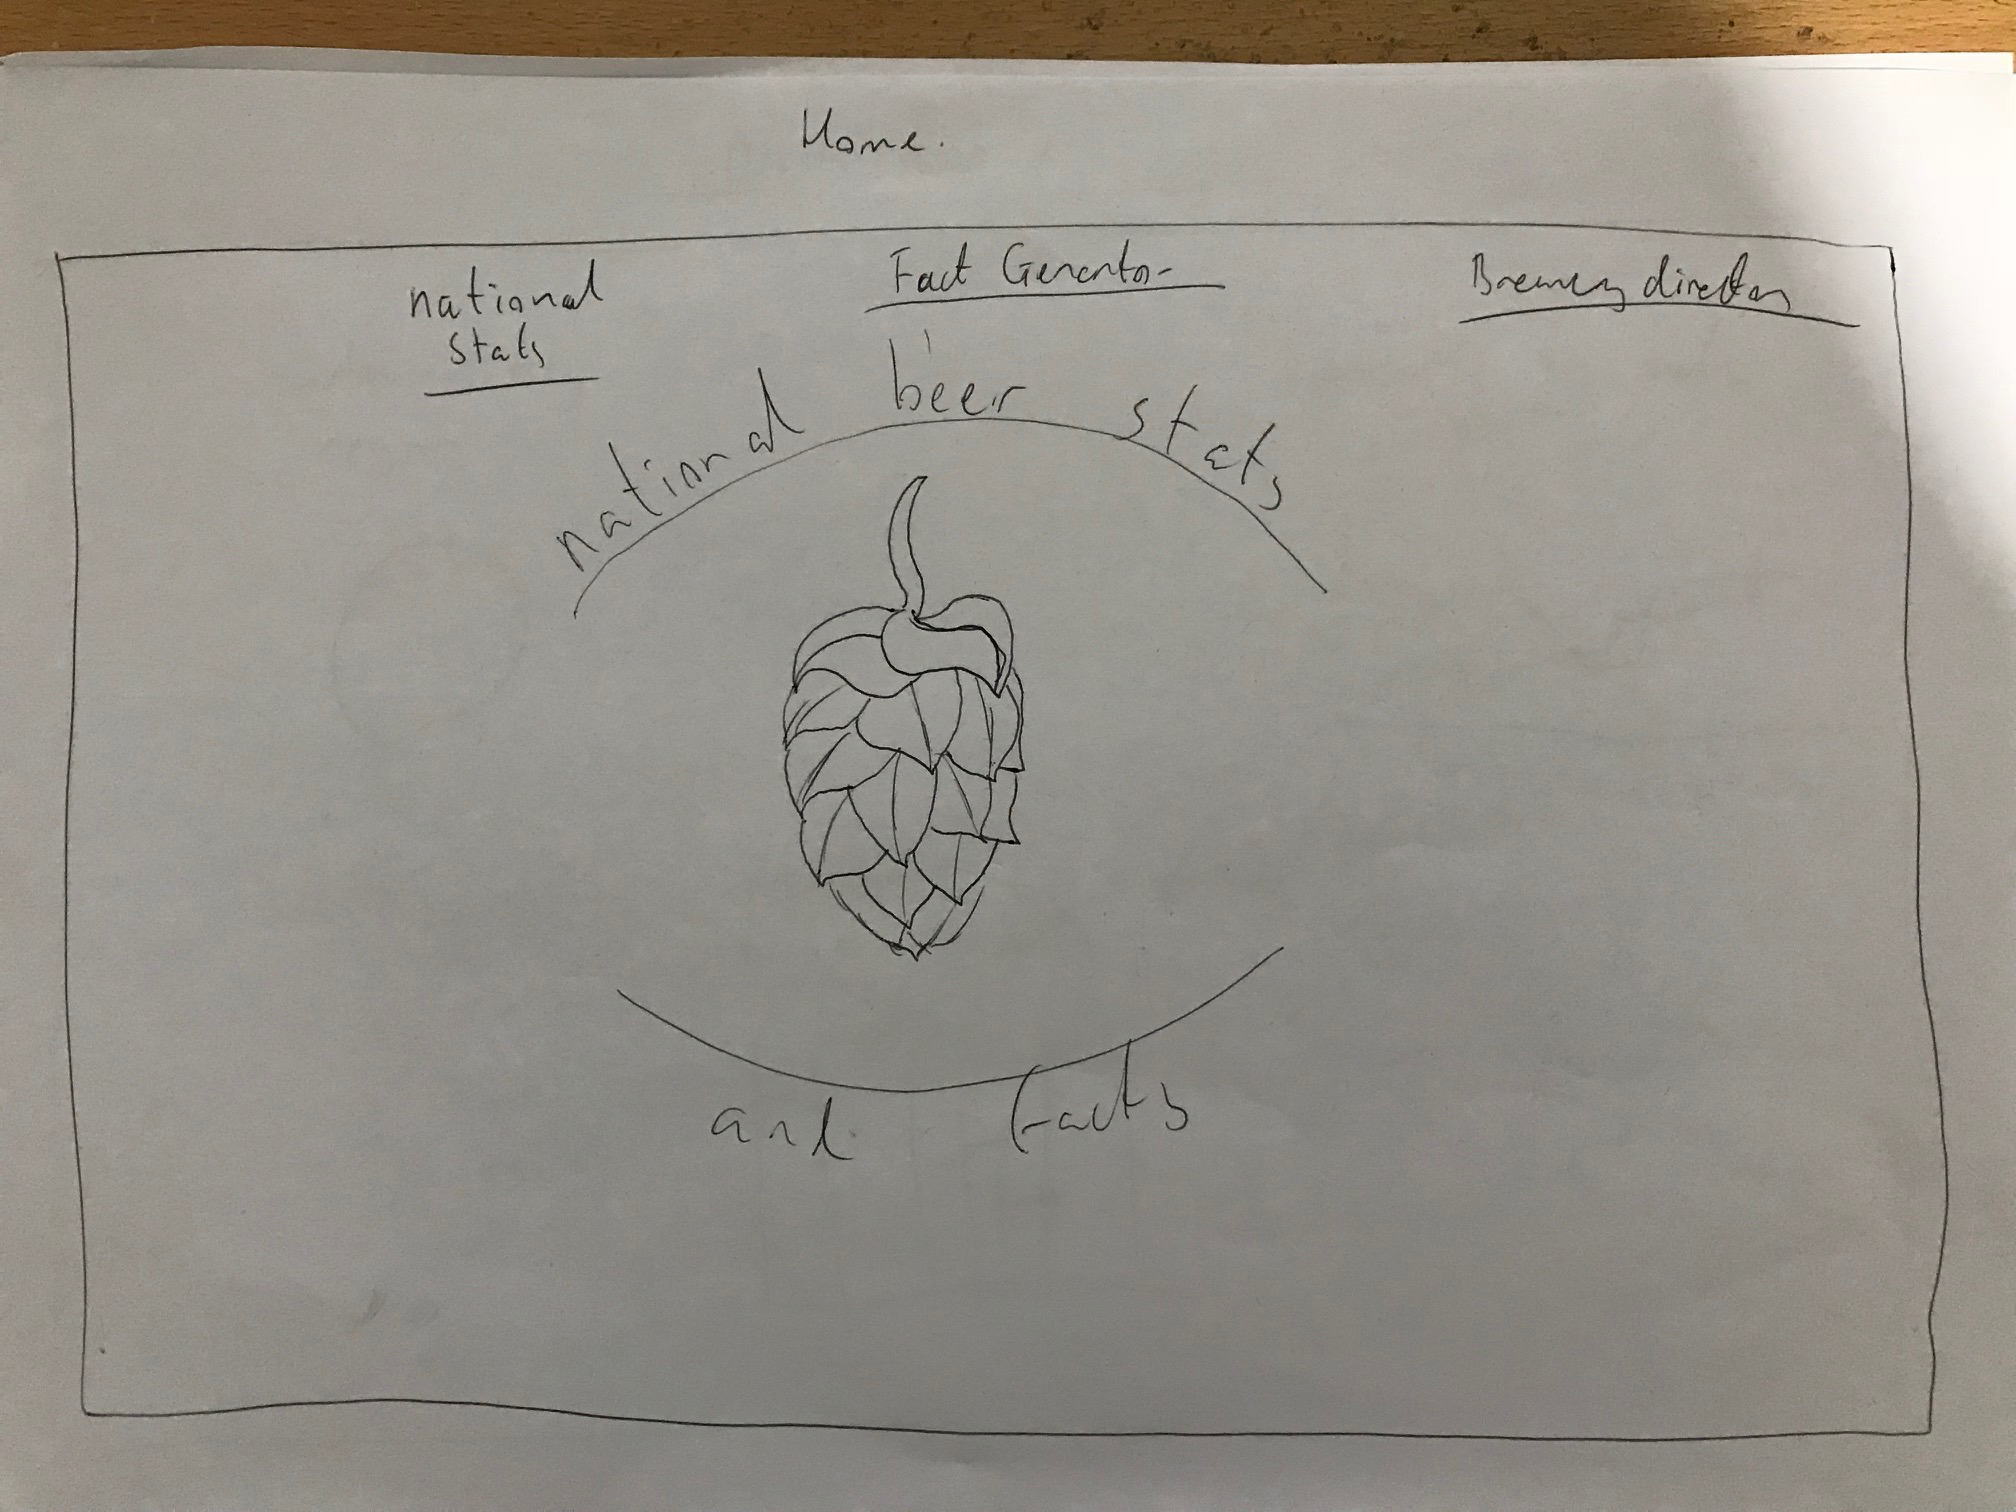 Home.
national
stats
Fact Generator
Brewery directory
national beer stats
and facts